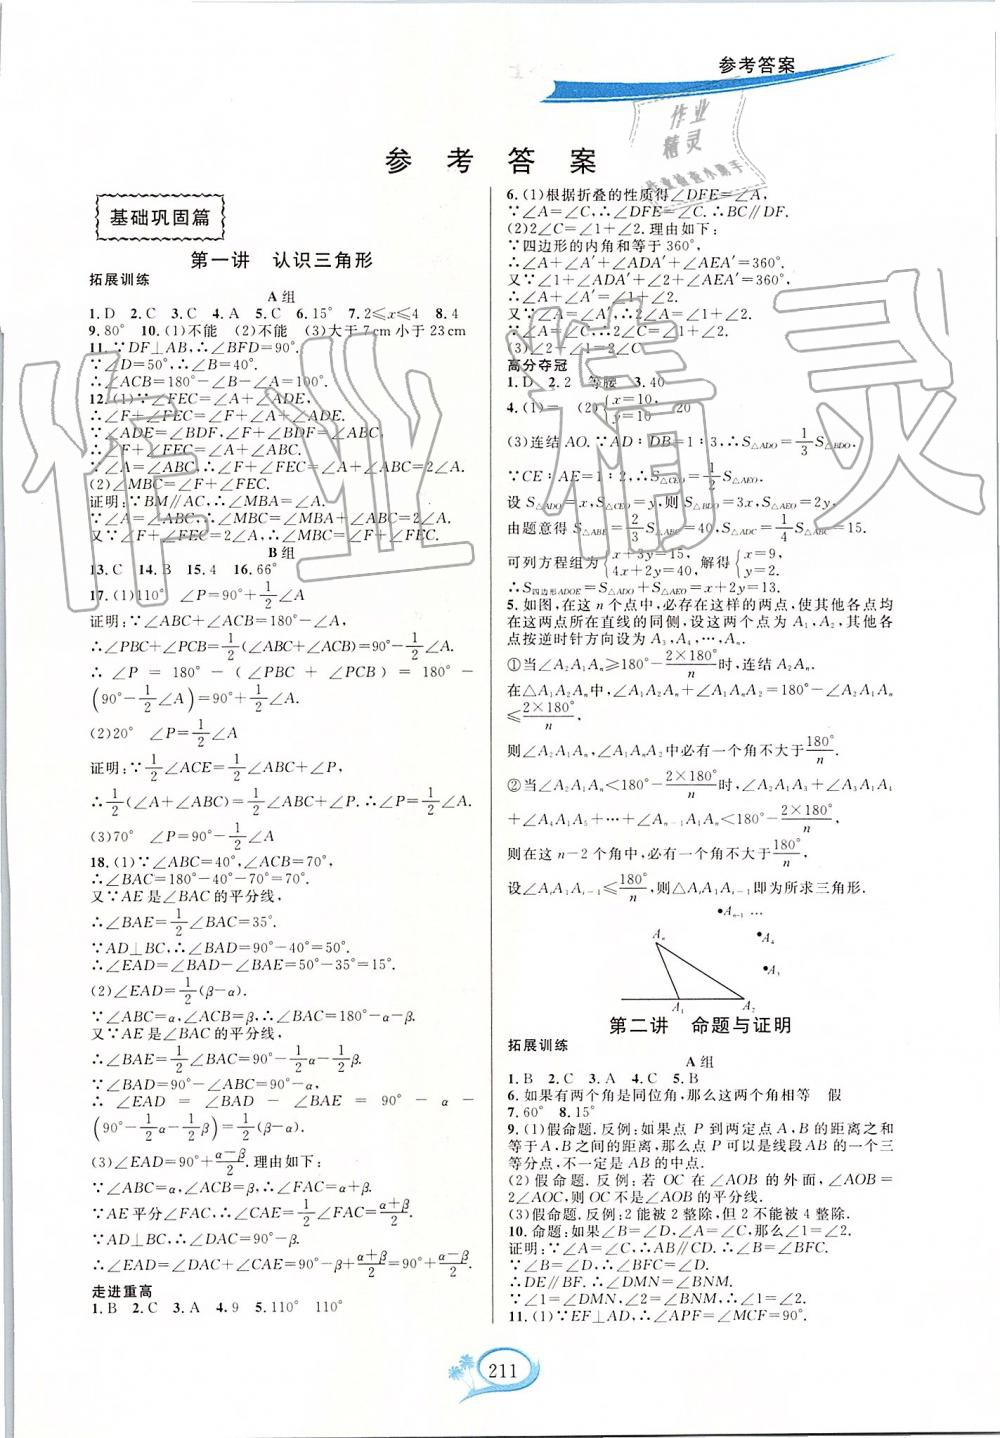 参考答案
参 考 答 案
作业
精灵
作业检查小助手
基础巩固篇
第一讲 认识三角形
拓展训练
A 组
1. D 2. C 3. C 4. A 5. C 6. 15° 7. 2≤x≤4 8. 4
9. 80° 10. (1)不能 (2)不能 (3)大于 7 cm 小于 23 cm
11. ∵DF⊥AB,∴∠BFD=90°.
∵∠D=50°,∴∠B=40°.
∴∠ACB=180°-∠B-∠A=100°.
12. (1)∵∠FEC=∠A+∠ADE,
∴∠F+∠FEC=∠F+∠A+∠ADE.
∵∠ADE=∠BDF,∠F+∠BDF=∠ABC,
∴∠F+∠FEC=∠A+∠ABC.
∵∠A=∠ABC,∴∠F+∠FEC=∠A+∠ABC=2∠A.
(2)∠MBC=∠F+∠FEC.
证明:∵BM∥AC,∴∠MBA=∠A.
∵∠A=∠ABC,∴∠MBC=∠MBA+∠ABC=2∠A.
又∵∠F+∠FEC=2∠A,∴∠MBC=∠F+∠FEC.
B 组
13. C 14. B 15. 4 16. 66°
17. (1)110° ∠P=90°+1/2∠A
证明:∵∠ABC+∠ACB=180°-∠A,
∴∠PBC+∠PCB=1/2(∠ABC+∠ACB)=90°-1/2∠A.
∴∠P = 180° - (∠PBC + ∠PCB) = 180° -
(90°-1/2∠A)=90°+1/2∠A.
(2)20° ∠P=1/2∠A
证明:∵1/2∠ACE=1/2∠ABC+∠P,
∴1/2(∠A+∠ABC)=1/2∠ABC+∠P.∴∠P=1/2∠A.
(3)70° ∠P=90°-1/2∠A
18. (1)∵∠ABC=40°,∠ACB=70°,
∴∠BAC=180°-40°-70°=70°.
又∵AE是∠BAC的平分线,
∴∠BAE=1/2∠BAC=35°.
∵AD⊥BC,∴∠BAD=90°-40°=50°.
∴∠EAD=∠BAD-∠BAE=50°-35°=15°.
(2)∠EAD=1/2(β-α).
∵∠ABC=α,∠ACB=β,∴∠BAC=180°-α-β.
又∵AE是∠BAC的平分线,
∴∠BAE=1/2∠BAC=90°-1/2α-1/2β.
∵∠BAD=90°-∠ABC=90°-α.
∴ ∠EAD = ∠BAD - ∠BAE = 90° - α -
(90°-1/2α-1/2β)=1/2(β-α).
(3)∠EAD=90°+(α-β)/2.理由如下:
∵∠ABC=α,∠ACB=β,∴∠FAC=α+β.
∵AE平分∠FAC,∴∠CAE=1/2∠FAC=(α+β)/2.
∵AD⊥BC,∴∠DAC=90°-β.
∴∠EAD=∠DAC+∠CAE=90°-β+(α+β)/2=90°+(α-β)/2.
走进重高
1. B 2. C 3. A 4. 9 5. 110° 110°
6. (1)根据折叠的性质得∠DFE=∠A,
∵∠A=∠C,∴∠DFE=∠C.∴BC∥DF.
(2)2∠C=∠1+∠2.理由如下:
∵四边形的内角和等于360°,
∴∠A+∠A′+∠ADA′+∠AEA′=360°.
又∵∠1+∠ADA′+∠2+∠AEA′=360°.
∴∠A+∠A′=∠1+∠2.
又∵∠A=∠A′,∴2∠A=∠1+∠2.
又∵∠A=∠C,∴2∠C=∠1+∠2.
(3)∠2-∠1=2∠C
高分夺冠
1. D 2. 2 等腰 3. 40
4. (1)= (2){x=10, y=10 20
(3)连结AO.∵AD∶DB=1∶3,∴S△ADO=1/3S△BDO.
∵CE∶AE=1∶2,∴S△CEO=1/2S△AEO.
设S△ADO=x,S△CEO=y,则S△BDO=3x,S△AEO=2y,
由题意得S△ABE=2/3S△ABC=40,S△ADC=1/4S△ABC=15.
可列方程组为{x+3y=15, 4x+2y=40,解得{x=9, y=2.
∴S四边形ADOE=S△ADO+S△AEO=x+2y=13.
5. 如图,在这n个点中,必存在这样的两点,使其他各点均
在这两点所在直线的同侧,设这两个点为A₁,A₂,其他各
点按逆时针方向设为A₃,A₄,…,Aₙ.
①当∠A₂A₁Aₙ≥180°-(2×180°)/n时,连结A₂Aₙ.
在△A₁A₂Aₙ中,∠A₁A₂Aₙ+∠A₁AₙA₂=180°-∠A₂A₁Aₙ
≤(2×180°)/n,
则∠A₁A₂Aₙ,∠A₁AₙA₂中必有一个角不大于180°/n.
②当∠A₂A₁Aₙ<180°-(2×180°)/n时,∠A₂A₁A₃+∠A₃A₁A₄
+∠A₄A₁A₅+…+∠Aₙ₋₁A₁Aₙ<180°-(2×180°)/n,
则在这n-2个角中,必有一个角不大于180°/n.
设∠AᵢA₁Aᵢ₋₁≤180°/n,则△AᵢA₁Aᵢ₋₁即为所求三角形.
Aₙ₋₁ …
Aₙ
A₄
A₃
A₁
A₂
第二讲 命题与证明
拓展训练
A 组
1. B 2. C 3. A 4. C 5. B
6. 如果有两个角是同位角,那么这两个角相等 假
7. 60° 8. 15°
9. (1)假命题.反例:如果点P到两定点A,B的距离之和
等于A,B之间的距离,那么点P可以是线段AB的一个三
等分点,不一定是AB的中点.
(2)假命题.反例:若OC在∠AOB的外面,∠AOB=
2∠AOC,则OC不是∠AOB的平分线.
(3)假命题.反例:2能被2整除,但2不能被4整除.
10. 命题:如果∠B=∠D,∠A=∠C,那么∠1=∠2.
证明:∵∠A=∠C,∴AB∥CD.∴∠B=∠BFC.
∵∠B=∠D,∴∠D=∠BFC.
∴DE∥BF.∴∠DMN=∠BNM.
∵∠1=∠DMN,∠2=∠BNM,∴∠1=∠2.
11. (1)∵EF⊥AD,∴∠APF=∠MCF=90°.
211
作业精灵